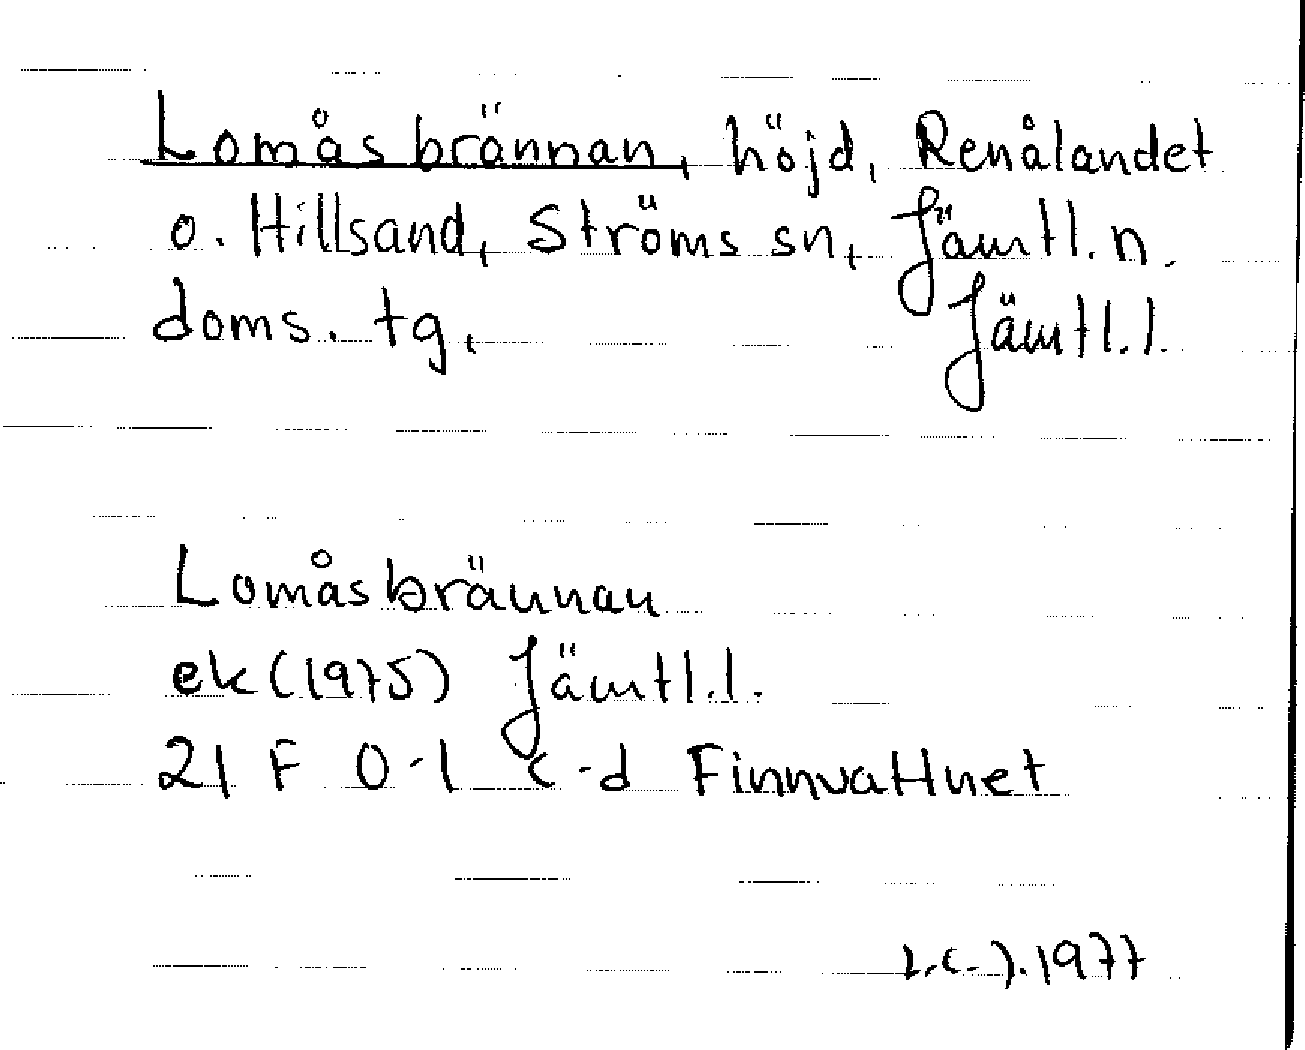 Lomåsbrännan, höjd, Renålandet
o. Hillsand, Ströms sn, Jämtl. n.
doms. tg, Jämtl. l.
Lomåsbrännan
ek (1975) Jämtl. l.
21 F 0-1 c-d Finnvattnet
1977